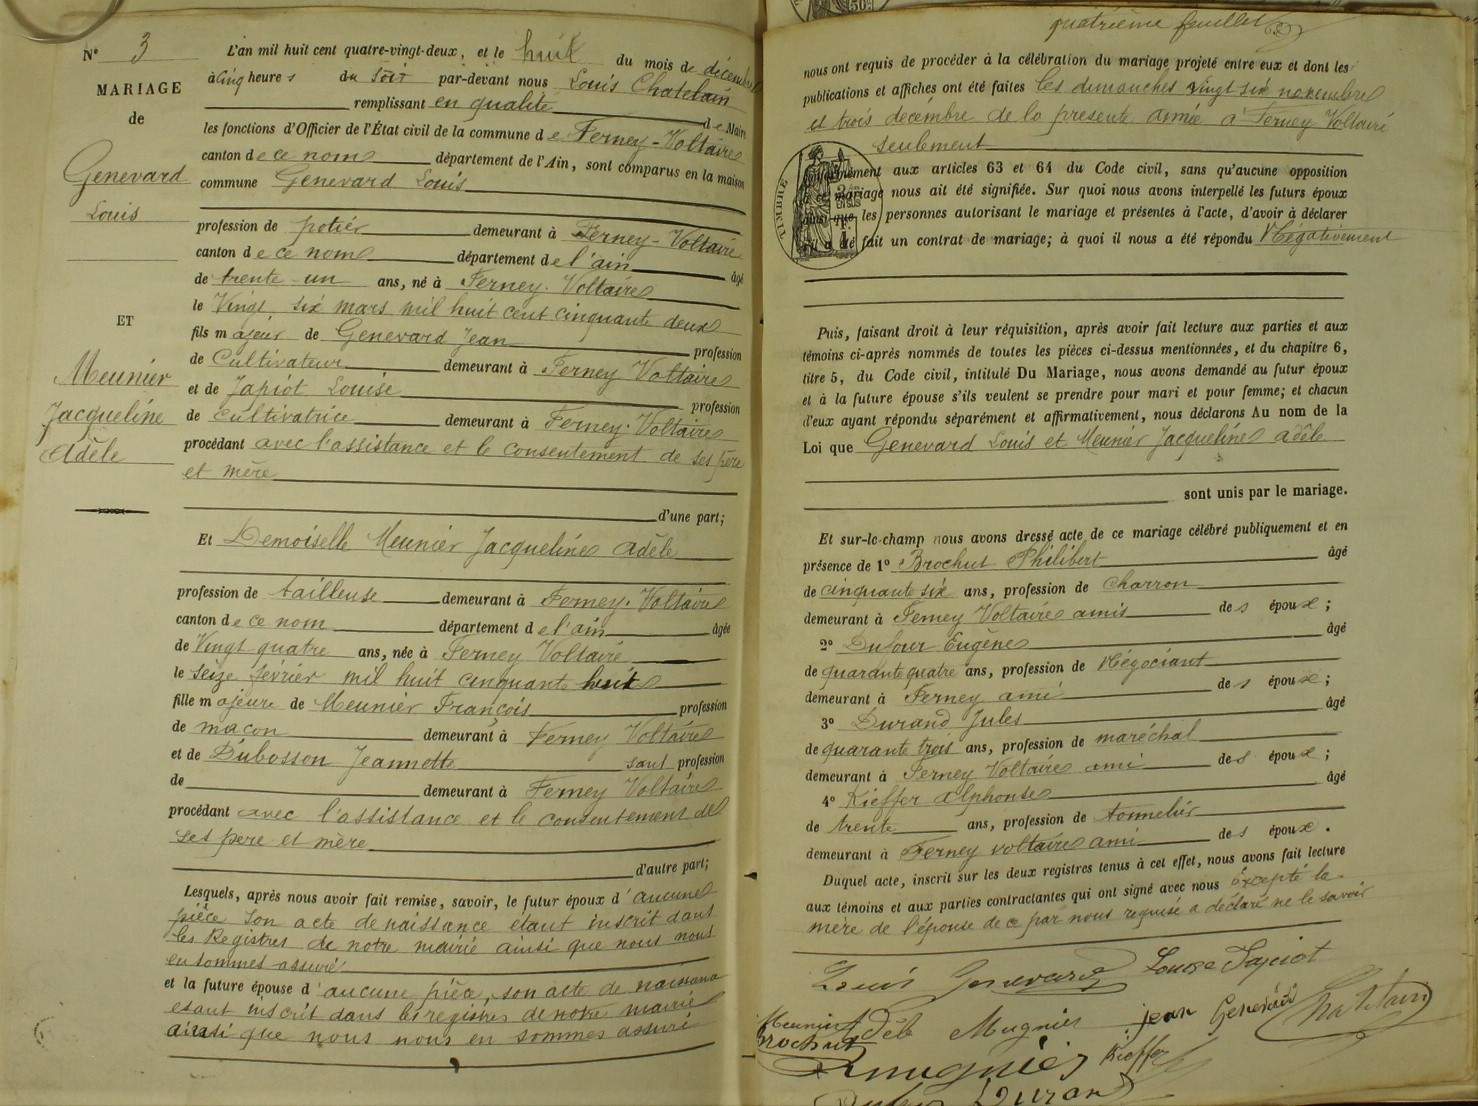 N° 3
MARIAGE
de
Genevard
Louis
ET
Meunier
Jacqueline
Adèle
L'an mil huit cent quatre-vingt-deux, et le huit du mois de décembre
à cinq heures du soir par-devant nous Louis Chatelain
remplissant en qualité de Maire
les fonctions d'Officier de l'État civil de la commune de Ferney-Voltaire
canton de ce nom département de l'Ain, sont comparus en la maison
commune Genevard Louis
profession de potier demeurant à Ferney-Voltaire
canton de ce nom département de l'ain âgé
de trente un ans, né à Ferney-Voltaire
le Vingt six mars mil huit cent cinquante deux
fils majeur de Genevard Jean profession
de Cultivateur demeurant à Ferney Voltaire
et de Japiot Louise profession
de Cultivatrice demeurant à Ferney-Voltaire
procédant avec l'assistance et le consentement de ses père
et mère
d'une part;
Et Demoiselle Meunier Jacqueline adèle
profession de tailleuse demeurant à Ferney-Voltaire
canton de ce nom département de l'ain âgée
de Vingt quatre ans, née à Ferney Voltaire
le Seize février mil huit cinquant huit
fille majeure de Meunier François profession
de maçon demeurant à Ferney Voltaire
et de Dubosson Jeannette sans profession
de demeurant à Ferney Voltaire
procédant avec l'assistance et le consentement de
ses père et mère
d'autre part;
Lesquels, après nous avoir fait remise, savoir, le futur époux d'aucune
pièce son acte de naissance étant inscrit dans
les Registres de notre mairie ainsi que nous nous
en sommes assuré
et la future épouse d'aucune pièce, son acte de naissance
étant inscrit dans les registres de notre mairie
ainsi que nous nous en sommes assuré
quatrième feuillet
nous ont requis de procéder à la célébration du mariage projeté entre eux et dont les
publications et affiches ont été faites les dimanches vingt six novembre
et trois décembre de la présente année à Ferney Voltaire
seulement
conformément aux articles 63 et 64 du Code civil, sans qu'aucune opposition
à ce mariage nous ait été signifiée. Sur quoi nous avons interpellé les futurs époux
ainsi que les personnes autorisant le mariage et présentes à l'acte, d'avoir à déclarer
s'il a été fait un contrat de mariage; à quoi il nous a été répondu Négativement
TIMBRE
Puis, faisant droit à leur réquisition, après avoir fait lecture aux parties et aux
témoins ci-après nommés de toutes les pièces ci-dessus mentionnées, et du chapitre 6,
titre 5, du Code civil, intitulé Du Mariage, nous avons demandé au futur époux
et à la future épouse s'ils veulent se prendre pour mari et pour femme; et chacun
d'eux ayant répondu séparément et affirmativement, nous déclarons Au nom de la
Loi que Genevard Louis et Meunier Jacqueline adèle
sont unis par le mariage.
Et sur-le-champ nous avons dressé acte de ce mariage célébré publiquement et en
présence de 1° Brochut Philibert âgé
de cinquante six ans, profession de Charron
demeurant à Ferney Voltaire amis des époux;
2° Dufour Eugène âgé
de quarante quatre ans, profession de Négociant
demeurant à Ferney ami des époux;
3° Durand Jules âgé
de quarante trois ans, profession de maréchal
demeurant à Ferney Voltaire ami des époux;
4° Kieffer alphonse âgé
de trente ans, profession de tonnelier
demeurant à Ferney voltaire ami des époux.
Duquel acte, inscrit sur les deux registres tenus à cet effet, nous avons fait lecture
aux témoins et aux parties contractantes qui ont signé avec nous excepté la
mère de l'épouse de ce par nous requise a déclaré ne le savoir
Louis Genevard Louise Japiot
Meunier Adèle Mugnier jean Genevard Chatelain
Brochut
Kieffer
Durand